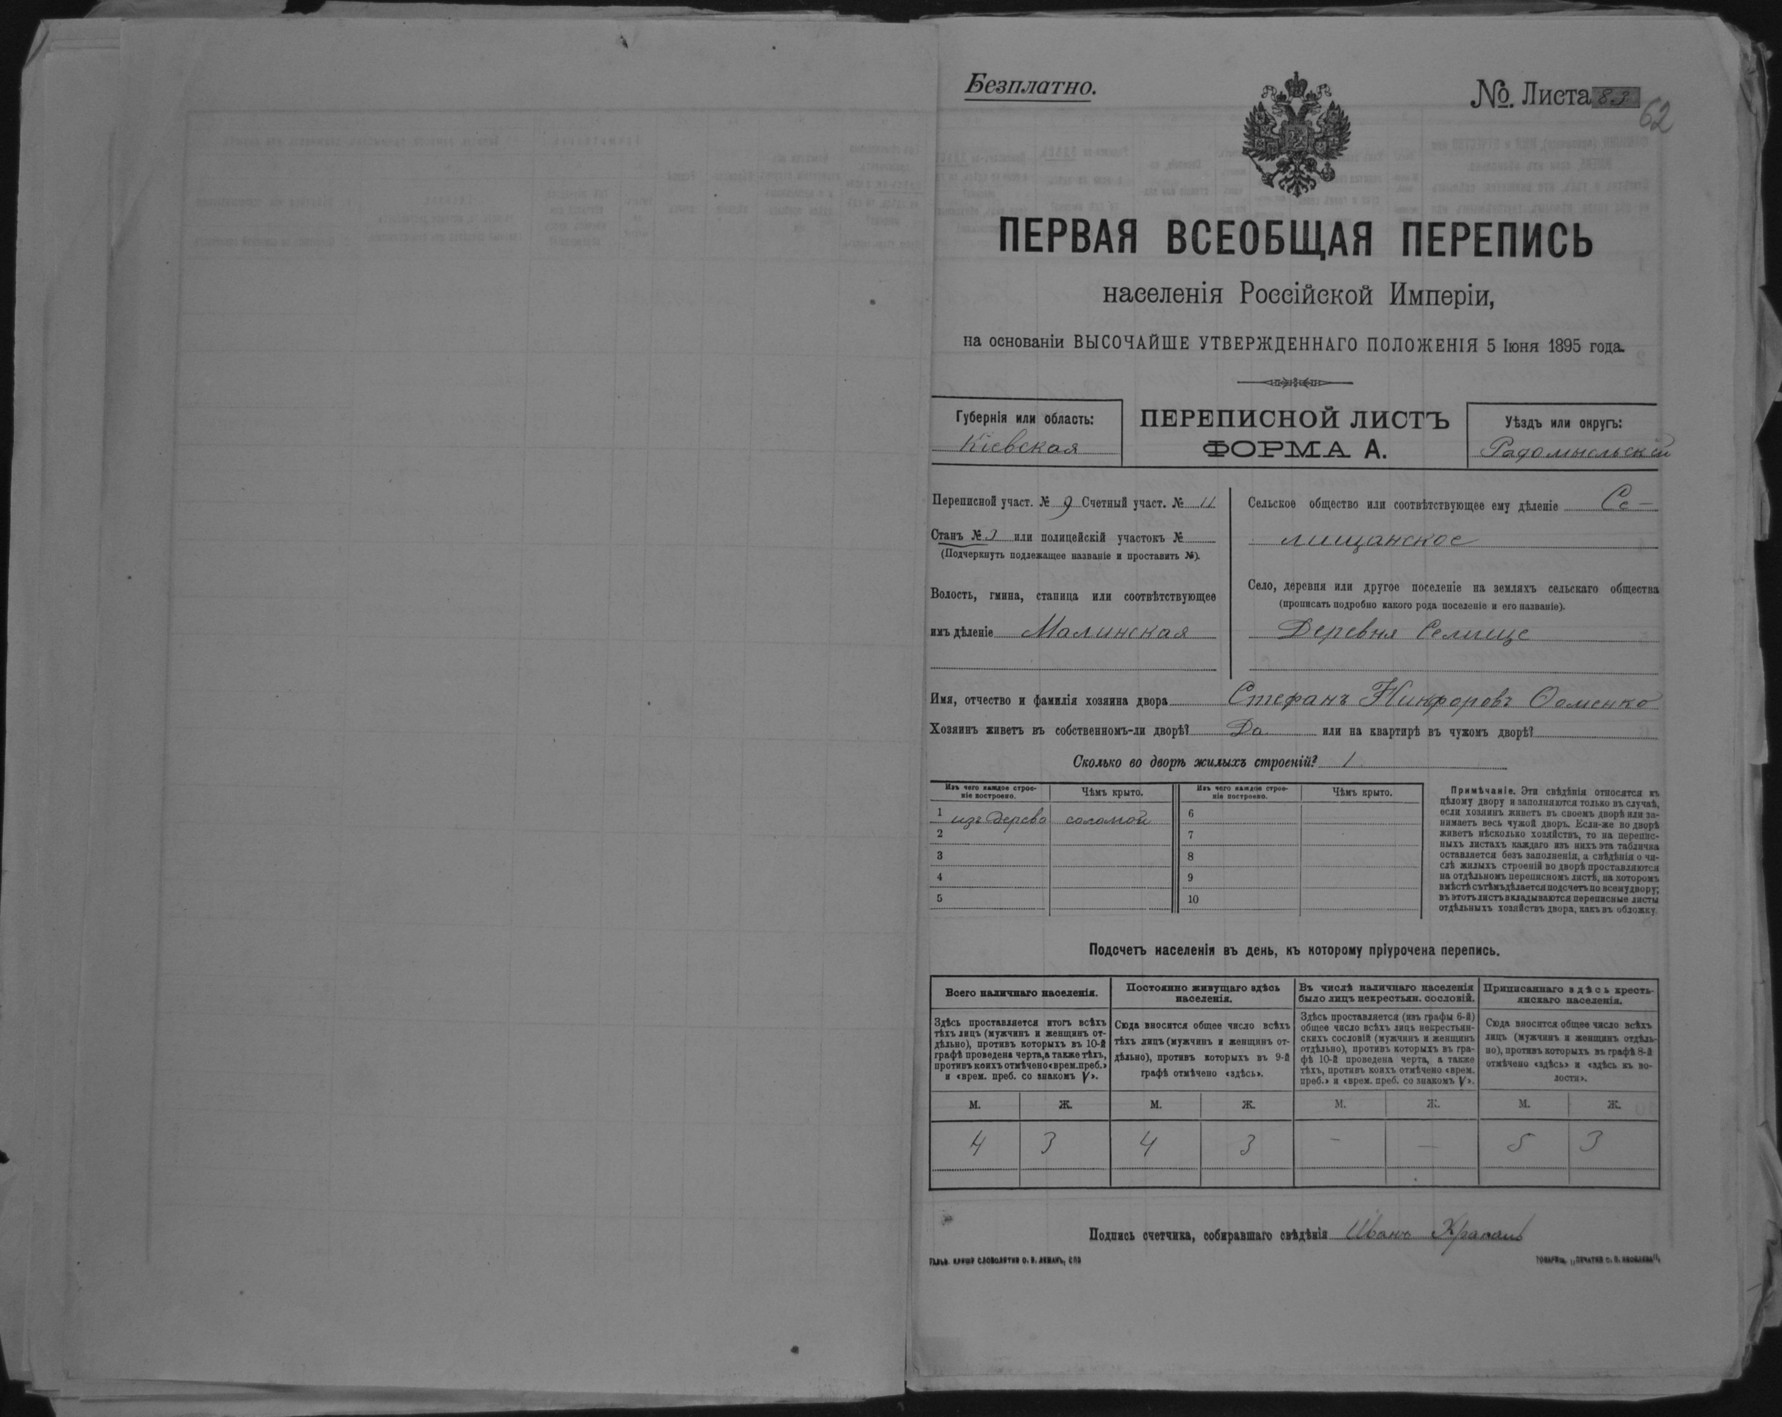 Безплатно.
№. Листа 83
62
ПЕРВАЯ ВСЕОБЩАЯ ПЕРЕПИСЬ
населенія Россійской Имперіи,
на основаніи ВЫСОЧАЙШЕ УТВЕРЖДЕННАГО ПОЛОЖЕНІЯ 5 Іюня 1895 года.
Губернія или область:
Кіевская
ПЕРЕПИСНОЙ ЛИСТЪ
ФОРМА А.
Уѣздъ или округъ:
Радомысльскій
Переписной участ. № 9 Счетный участ. № 11
Станъ № 3 или полицейскій участокъ №
(Подчеркнуть подлежащее названіе и проставить №).
Волость, гмина, станица или соотвѣтствующее
имъ дѣленіе Малинская
Сельское общество или соотвѣтствующее ему дѣленіе Се-
лищанское
Село, деревня или другое поселеніе на земляхъ сельскаго общества
(прописать подробно какого рода поселеніе и его названіе).
Деревня Селище
Имя, отчество и фамилія хозяина двора Стефанъ Никифоровъ
Хозяинъ живетъ въ собственномъ-ли дворѣ? Да или на квартирѣ въ чужомъ дворѣ?
Сколько во дворѣ жилыхъ строеній? 1
Изъ чего каждое строе-
ніе построено.
Чѣмъ крыто.
Изъ чего каждое строе-
ніе построено.
Чѣмъ крыто.
1 изъ дерева соломой
2
3
4
5
6
7
8
9
10
Примѣчаніе. Эти свѣдѣнія относятся къ
цѣлому двору и заполняются только въ случаѣ,
если хозяинъ живетъ въ своемъ дворѣ или за-
нимаетъ весь чужой дворъ. Если-же во дворѣ
живетъ нѣсколько хозяйствъ, то на перепис-
ныхъ листахъ каждаго изъ нихъ эта табличка
оставляется безъ заполненія, а свѣдѣнія о чи-
слѣ жилыхъ строеній во дворѣ проставляются
на отдѣльномъ переписномъ листѣ, на которомъ
вмѣстѣ съ тѣмъ дѣлается подсчетъ по всему двору;
въ этотъ листъ вкладываются переписные листы
отдѣльныхъ хозяйствъ двора, какъ въ обложку.
Подсчетъ населенія въ день, къ которому пріурочена перепись.
Всего наличнаго населенія.
Здѣсь проставляется итогъ всѣхъ
тѣхъ лицъ (мужчинъ и женщинъ от-
дѣльно), противъ которыхъ въ 10-й
графѣ проведена черта, а также тѣхъ,
противъ коихъ отмѣчено «врем. преб.»
и «врем. преб. со знакомъ V».
Постоянно живущаго здѣсь
населенія.
Сюда вносится общее число всѣхъ
тѣхъ лицъ (мужчинъ и женщинъ от-
дѣльно), противъ которыхъ въ 9-й
графѣ отмѣчено «здѣсь».
Въ числѣ наличнаго населенія
было лицъ некрестьян. сословій.
Здѣсь проставляется (изъ графы 6-й)
общее число всѣхъ лицъ некрестьян-
скихъ сословій (мужчинъ и женщинъ
отдѣльно), противъ которыхъ въ гра-
фѣ 10-й проведена черта, а также
тѣхъ, противъ коихъ отмѣчено «врем.
преб.» и «врем. преб. со знакомъ V».
Приписаннаго здѣсь кресть-
янскаго населенія.
Сюда вносится общее число всѣхъ
лицъ (мужчинъ и женщинъ отдѣль-
но), противъ которыхъ въ графѣ 8-й
отмѣчено «здѣсь» и «здѣсь въ во-
лости».
М. Ж. М. Ж. М. Ж. М. Ж.
4 3 4 3 — — 5 3
Подпись счетчика, собиравшаго свѣдѣнія Иванъ